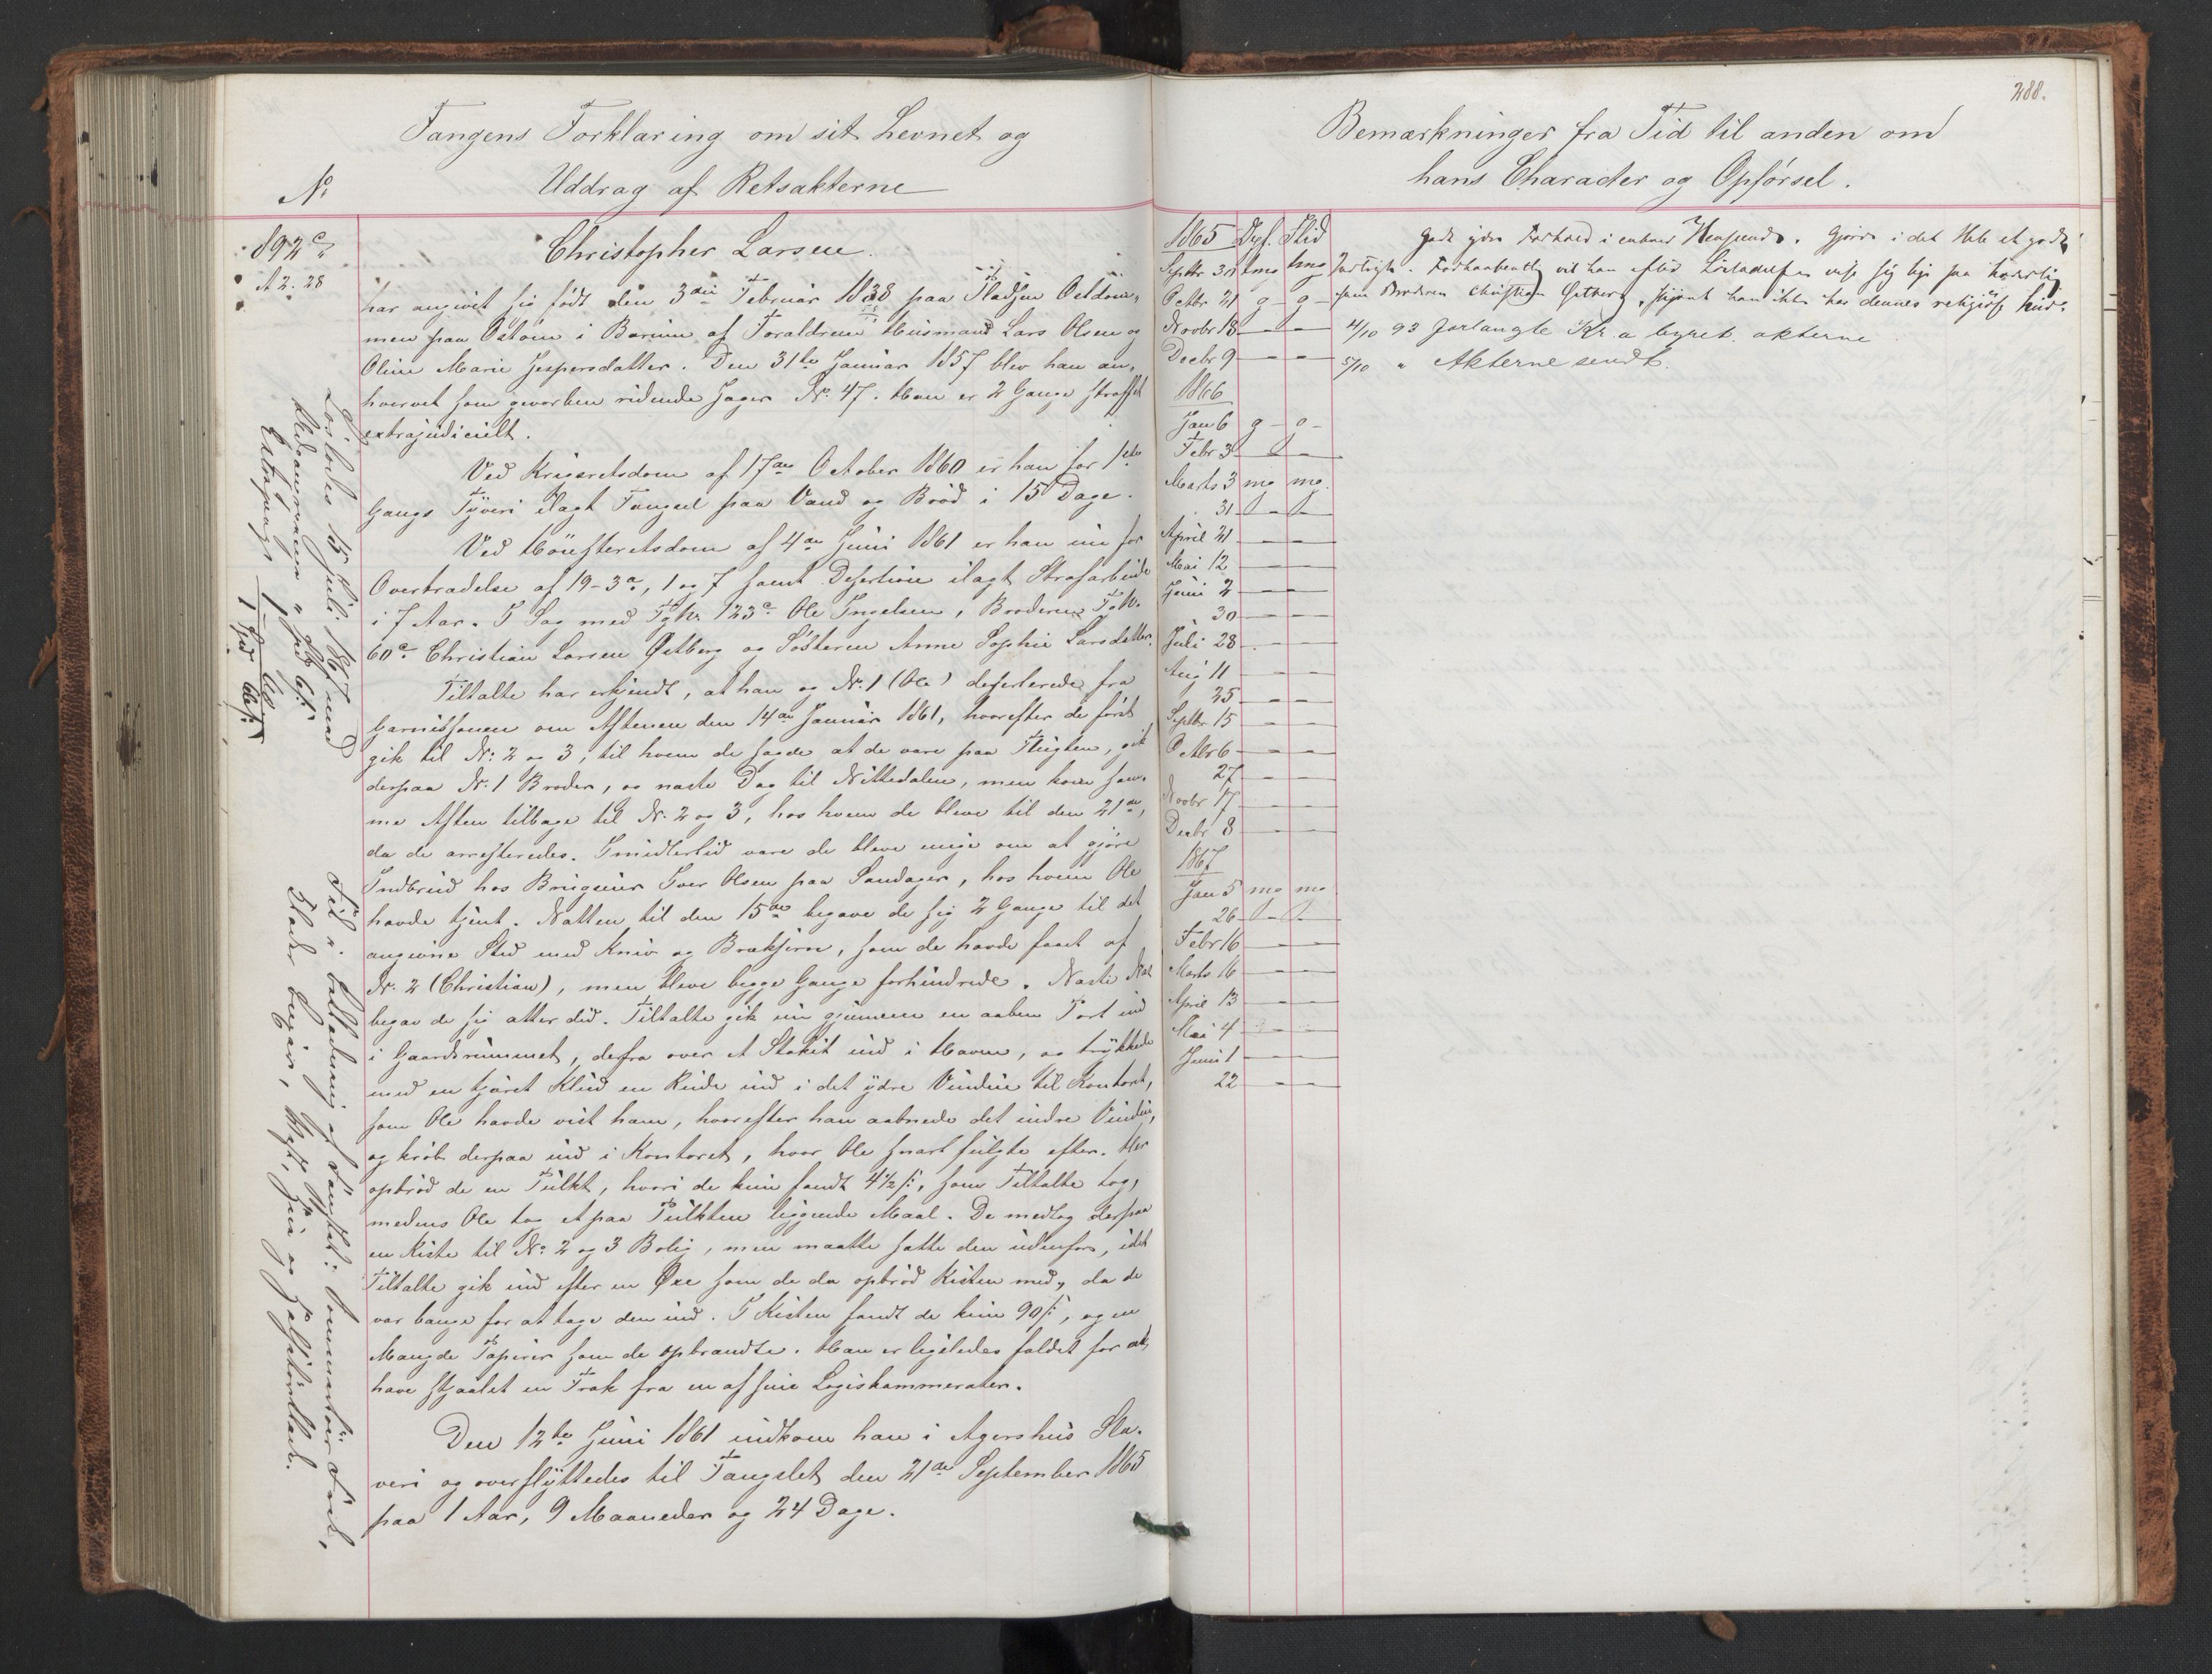 Fangens Forklaring om sit Levnet og
Uddrag af Retsakterne
No
892c
A2. 28
Christopher Larsen.
har angivet sig født den 3die Februar 1838 paa Pladsen Oestdom-
men paa Østøm i Bærum af Forældrene Husmand Lars Olsen og
Oline Marie Jespersdatter. Den 31te Januar 1857 blev han an-
hvervet som gevorben ridende Jæger No. 47. Han er 2 Gange straffet
extrajudicielt.
Ved Krigsretsdom af 17de October 1860 er han for 1ste
Gangs Tyveri ilagt Fængsel paa Vand og Brød i 15 Dage.
Ved Høiesteretsdom af 4de Juni 1861 er han nu for
Overtrædelse af 19-3a, 1 og 7 samt Desertion ilagt Strafarbeide
i 7 Aar. I Sag med Fg. No. 123c Ole Ingelsen, Broderen Fg. No.
60c Christian Larsen Østberg og Søsteren Anne Sophie Larsdatter.
Tiltalte har erkjendt, at han og No. 1 (Ole) deserterede fra
Garnissonen om Aftenen den 14de Januar 1861, hvorefter de først
gik til No. 2 og 3, til hvem de sagde at de vare paa Flugten, gik
derpaa No. 1 Broder, og næste Dag til Nittedalen, men kom sam-
me Aften tilbage til No. 2 og 3, hos hvem de bleve til den 21de,
da de arresteredes. Imidlertid vare de bleve enige om at gjøre
Indbrud hos Brugseier Iver Olsen paa Sandager, hos hvem Ole
havde tjent. Natten til den 15de begave de sig 2 Gange til det
angivne Sted med Kniv og Brækjern, som de havde faaet af
No. 2 (Christian), men bleve begge Gange forhindrede. Næste Nat
begav de sig atter did. Tiltalte gik nu gjennem en aaben Port ind
i Gaardsrummet, derfra over et Stakit ind i Haven, og trykkede
med en tjæret Klud en Rude ind i det ydre Vindue til Kontoret,
som Ole havde vist ham, hvorefter han aabnede det indre Vindue,
og krøb derpaa ind i Kontoret, hvor Ole snart fulgte efter. Her
opbrød de en Pulkt, hvori de kun fandt 4½ ß, som Tiltalte tog,
medens Ole tog et paa Pulkten liggende Maal. De medtog derpaa
en Kiste til No. 2 og 3 Bolig, men maatte sætte den udenfor, idet
Tiltalte gik ind efter en Øxe som de da opbrød Kisten med, da de
var bange for at tage den ind. I Kisten fandt de kun 90 ß, og en
Mængde Papirer som de opbrændte. Han er ligeledes fældet for at
have stjaalet en Frak fra en af sine Logiskammerater.
Den 12te Juni 1861 indkom han i Agershus Sla-
veri og overflyttedes til Fængslet den 21de September 1865
paa 1 Aar, 9 Maaneder og 24 Dage.
Løslodes 15 Juli 1867 med
Extrapenge
Klæder
288.
Bemærkninger fra Tid til anden om
hans Character og Opførsel.
1865 Opf. Flid
Septbr 30 tmg tmg
Octbr 21 g - g -
Novbr 18 - -
Decbr 9 - -
1866
Jan 6 g - g -
Febr 3 - -
Marts 3 mg mg.
31 - -
April 21 - -
Mai 12 - -
Juni 2 - -
30 - -
Juli 28 - -
Aug 11 - -
25 - -
Septbr 15 - -
Octbr 6 - -
27 - -
Novbr 17 - -
Decbr 8 - -
1867
Jan 5 mg mg
26 - -
Febr 16 - -
Marts 16 - -
April 13 - -
Mai 4 - -
Juni 1 - -
22 - -
Godt ydre Forhold i enhver Henseende. Gjorde i det Hele et godt
Indtryk. Forhaabentlig vil han efter Løsladelsen vise sig lige saa hæderlig
som Broderen Christian Østberg, skjønt han ikke har dennes religiøse Sind.
4/10 93 forlangte Kr.a byret. akterne
5/10 " Akterne sendt.